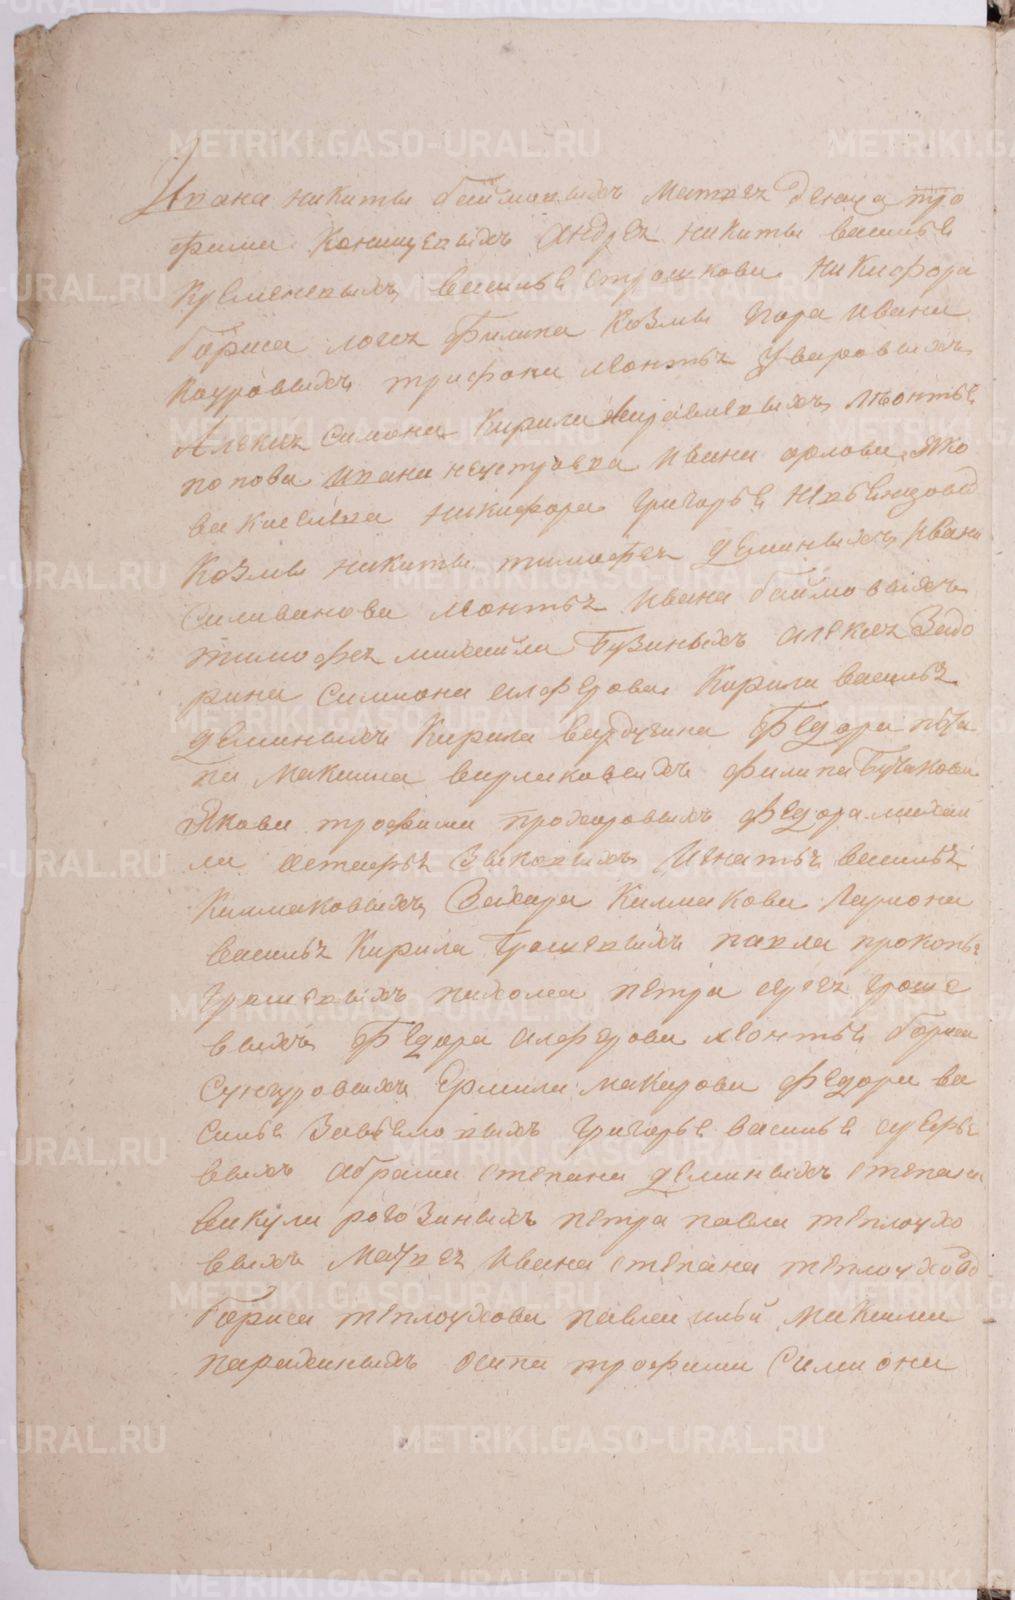 METRIKI.GASO-URAL.RU
Ивана никиты баймовыхъ Матвея дениса тро
фима Конищевыхъ Андрея никиты василье
Кузменскихъ василья страшкова никифора
бориса логея филипа Козмы Егора ивана
Кауровыхъ трифона леонтья Уваровыхъ
Алексея симона Кирила Журавлевыхъ леонтья
попова ивана неустроева ивана орлова Яко
ва киселева никифора григорья
Козмы никиты тимофея деминыхъ ивана
Силиванова леонтья ивана баймовыхъ
тимофея михайла Бузиныхъ алексея Задо
рина симиона алферова Кирила василья
деминыхъ Кирила вардугина Федора пота
па Максима вурлаковскихъ филипа Бучакова
Якова трофима прохоровыхъ федора михаи
ла астафья Зыковыхъ Игнатья василья
Килмаковыхъ Захара Килмакова Лариона
василья Кирила Грошевыхъ павла прокопье
Грошевыхъ пахома петра сергея гроше
выхъ Федора алферова леонтья бориса
Сунгуровыхъ Ермила макарова федора ва
силья Завьяловыхъ григорья василья
выхъ абрама степана деминыхъ степана
викула рогозиныхъ петра павла теплоухо
выхъ Матвея ивана степана теплоуховыхъ
бориса теплоухова павла ильи Максима
парахиныхъ осипа трофима Симиона